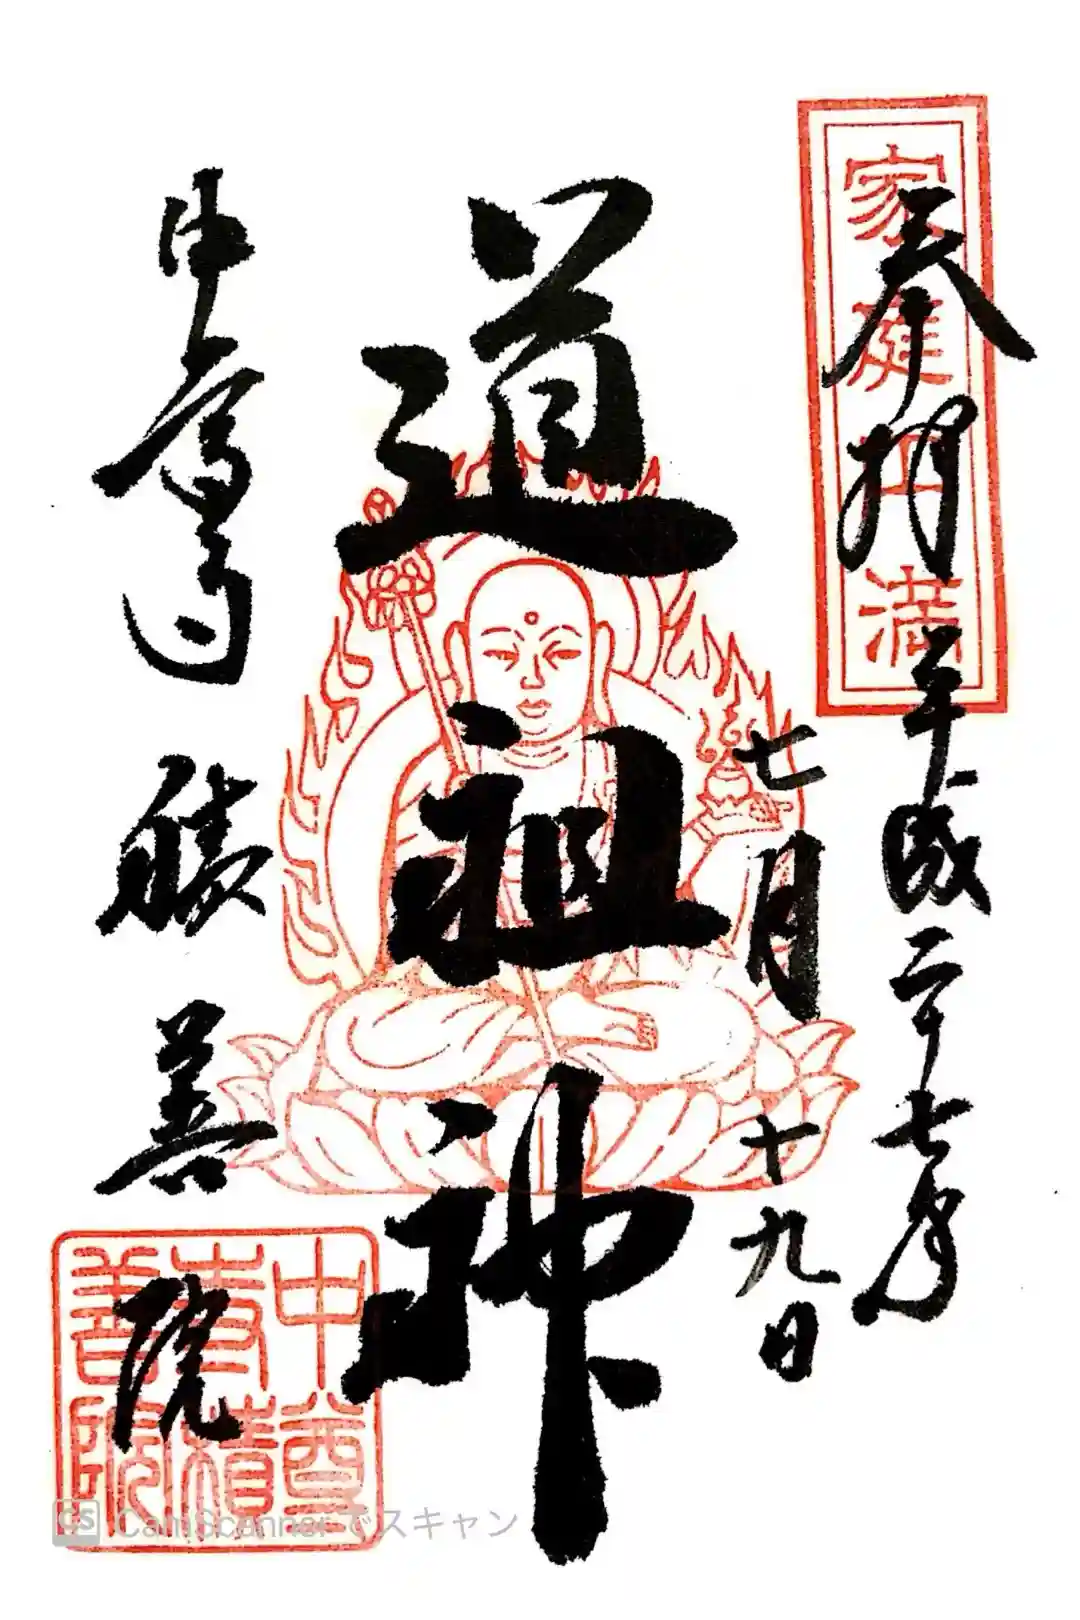 家庭円満
奉拝 平成二十七年
七月十九日
道祖神
中尊寺 積善院
中尊
寺積
善院
CS CamScannerでスキャン